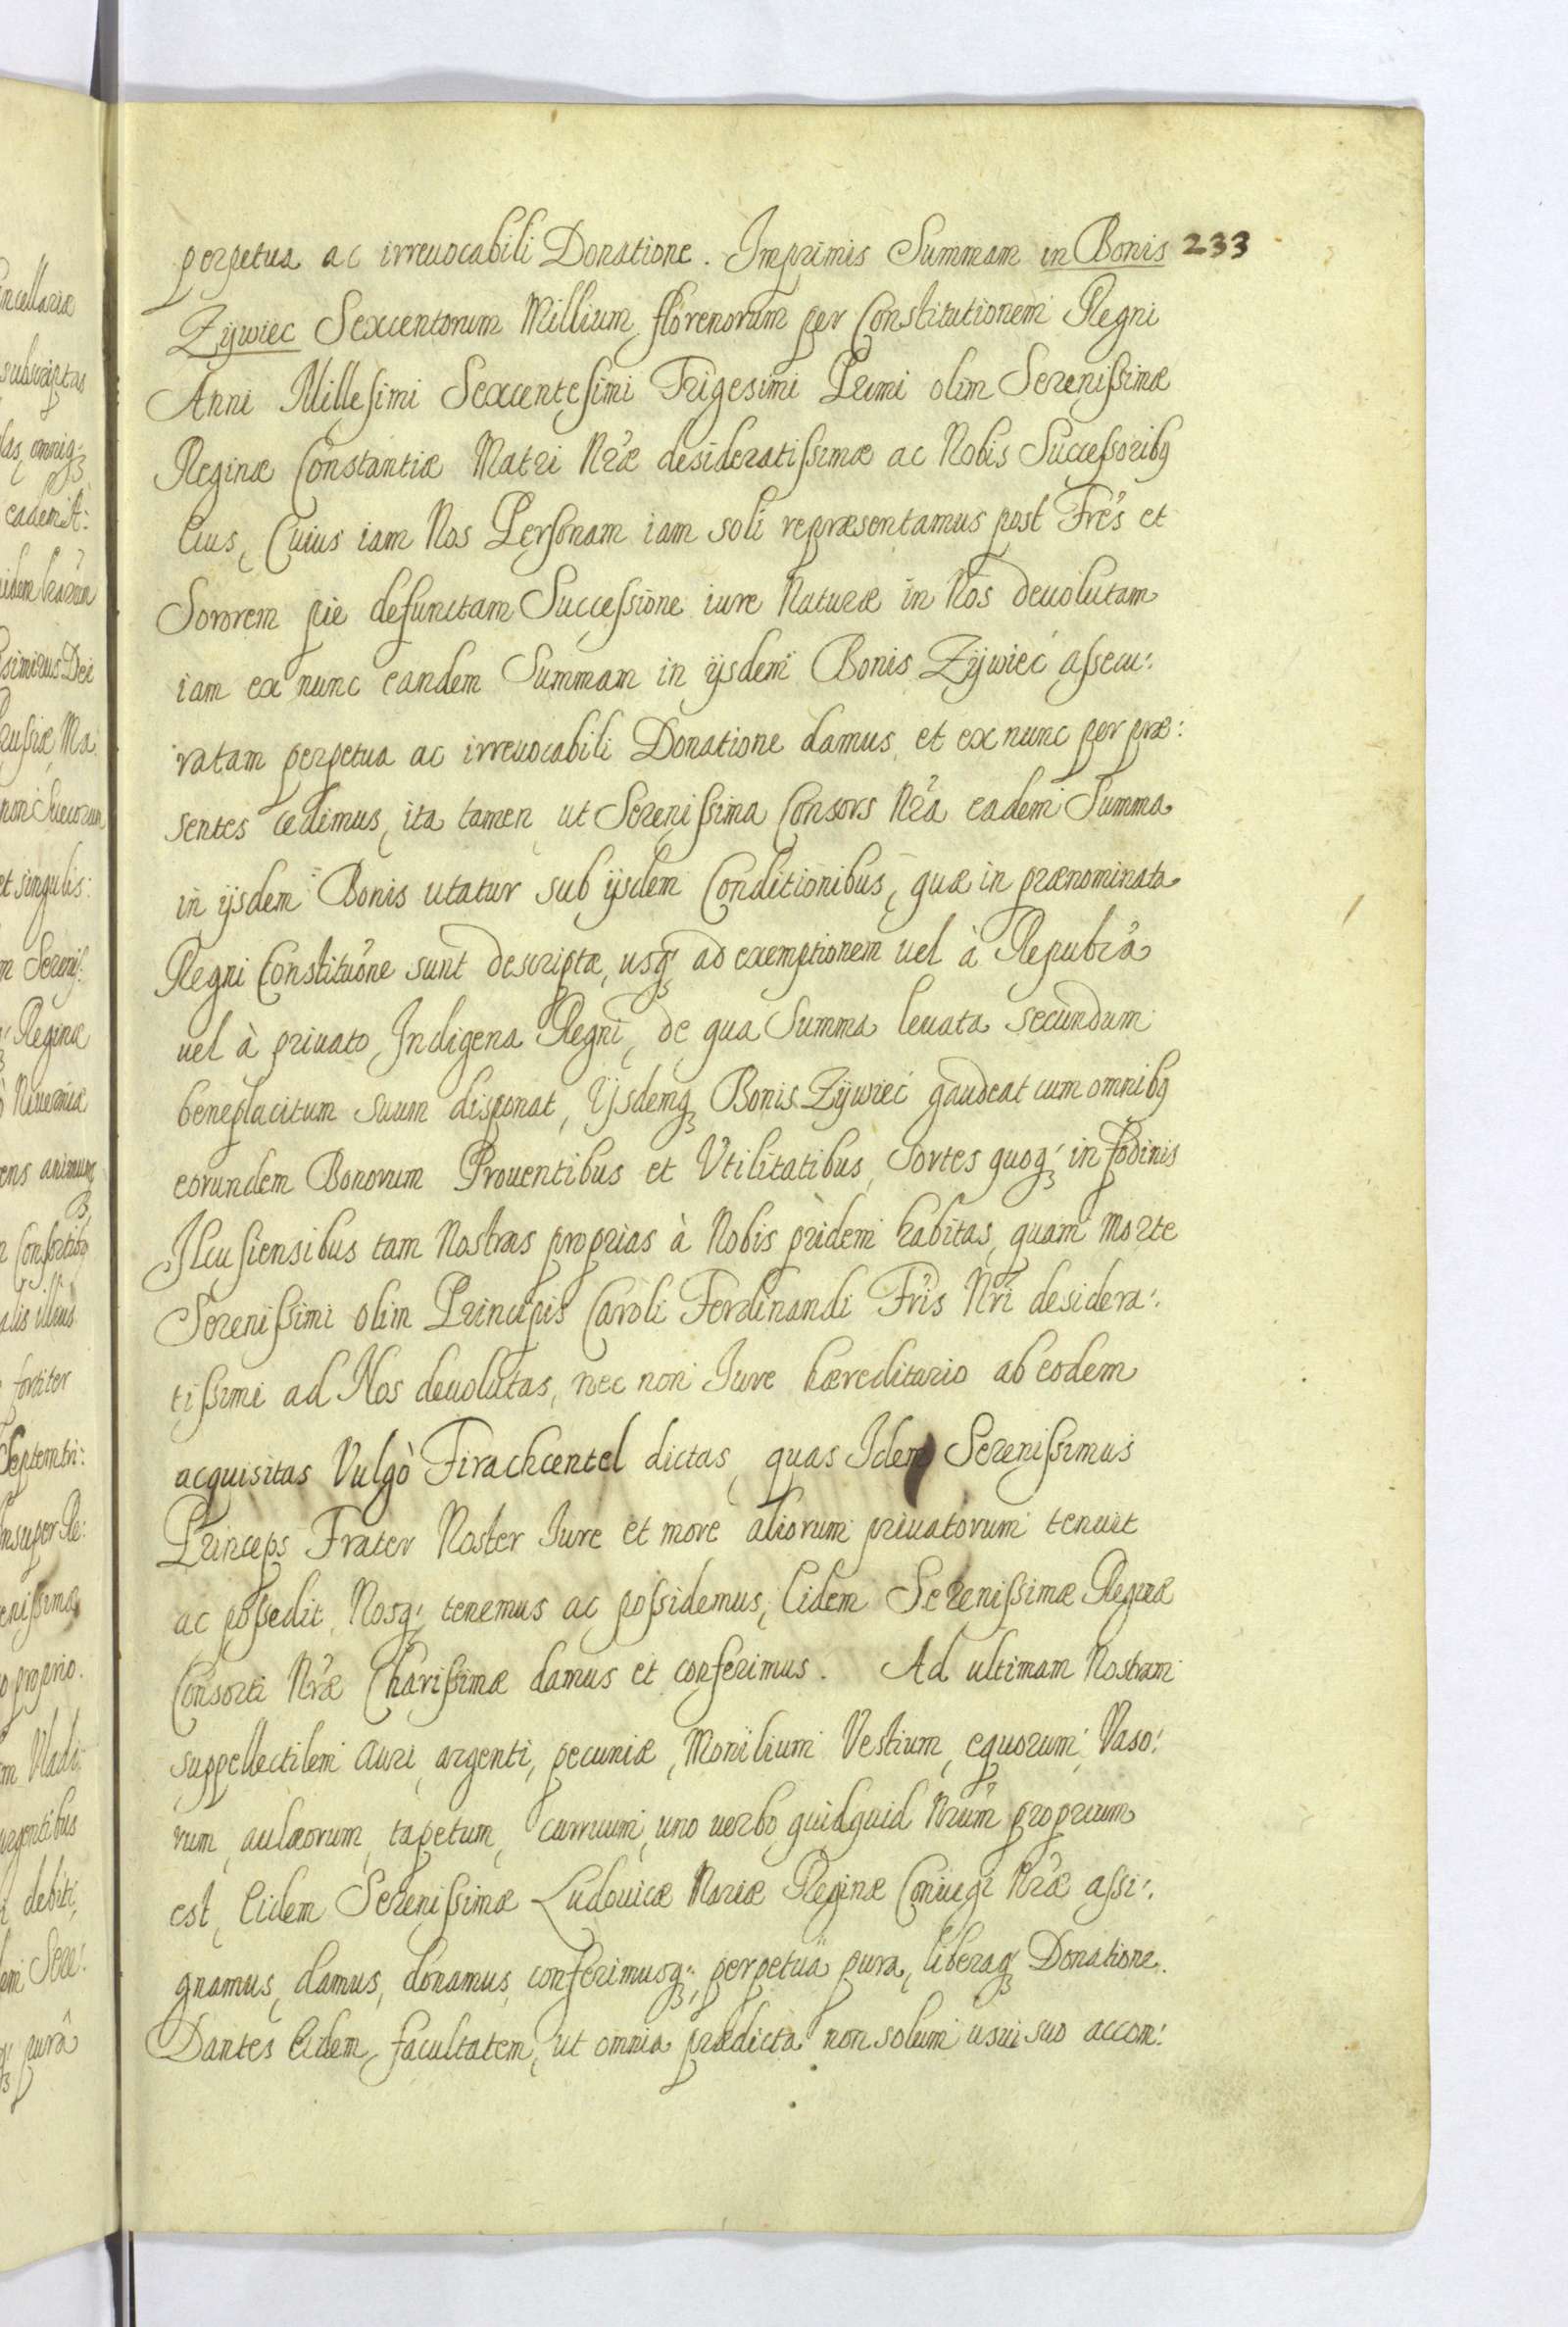 perpetua ac irreuocabili Donatione. Imprimis Summam in Bonis 233
Zywiec Sexcentorum Millium florenorum per Constitutionem Regni
Anni Millesimi Sexcentesimi Trigesimi Primi olim Serenissimæ
Reginæ Constantiæ Matri Nr̃æ desideratissimæ ac Nobis Successoribq
Eius, Cuius iam Nos Personam iam soli repræsentamus post Fr̃es et
Sororem pie defunctam Successione iure Naturæ in Nos deuolutam
iam ex nunc eandem Summam in ijsdem Bonis Zywiec assecu:
ratam perpetua ac irreuocabili Donatione damus et ex nunc per præ:
sentes cedimus, ita tamen ut Serenissima Consors Nr̃a eadem Summa
in ijsdem Bonis utatur sub ijsdem Conditionibus, quæ in prænominata
Regni Constituõne sunt descriptæ, usq; ad exemptionem uel à Republ̃a
uel à priuato Indigena Regni, de qua Summa leuata secundum
beneplacitum suum disponat, Ijsdemq; Bonis Zywiec gaudeat cum omnibq
eorundem Bonorum Prouentibus et Vtilitatibus, Sortes quoq; in fodinis
Ilcusiensibus tam Nostras proprias à Nobis pridem habitas, quam morte
Serenissimi olim Principis Caroli Ferdinandi Fr̃is Nr̃i desidera:
tissimi ad Nos deuolutas, nec non Iure hæreditario ab eodem
acquisitas Vulgò Firachcentel dictas, quas Idem Serenissimus
Princeps Frater Noster Iure et more aliorum priuatorum tenuit
ac possedit, Nosq; tenemus ac possidemus, Eidem Serenissimæ Reginæ
Consorti Nr̃æ Charissimæ damus et conferimus. Ad ultimam Nostram
suppellectilem auri, argenti, pecuniæ, Monilium Vestium, equorum, Vaso:
rum, aulæorum, tapetum, curruum, uno uerbo quidquid Nr̃um proprium
est, Eidem Serenissimæ Ludouicæ Mariæ Reginæ Coniugi Nr̃æ assi:
gnamus, damus, donamus, conferimusq; perpetua pura, liberaq; Donatione.
Dantes Eidem facultatem, ut omnia prædicta non solum usui suo accom: